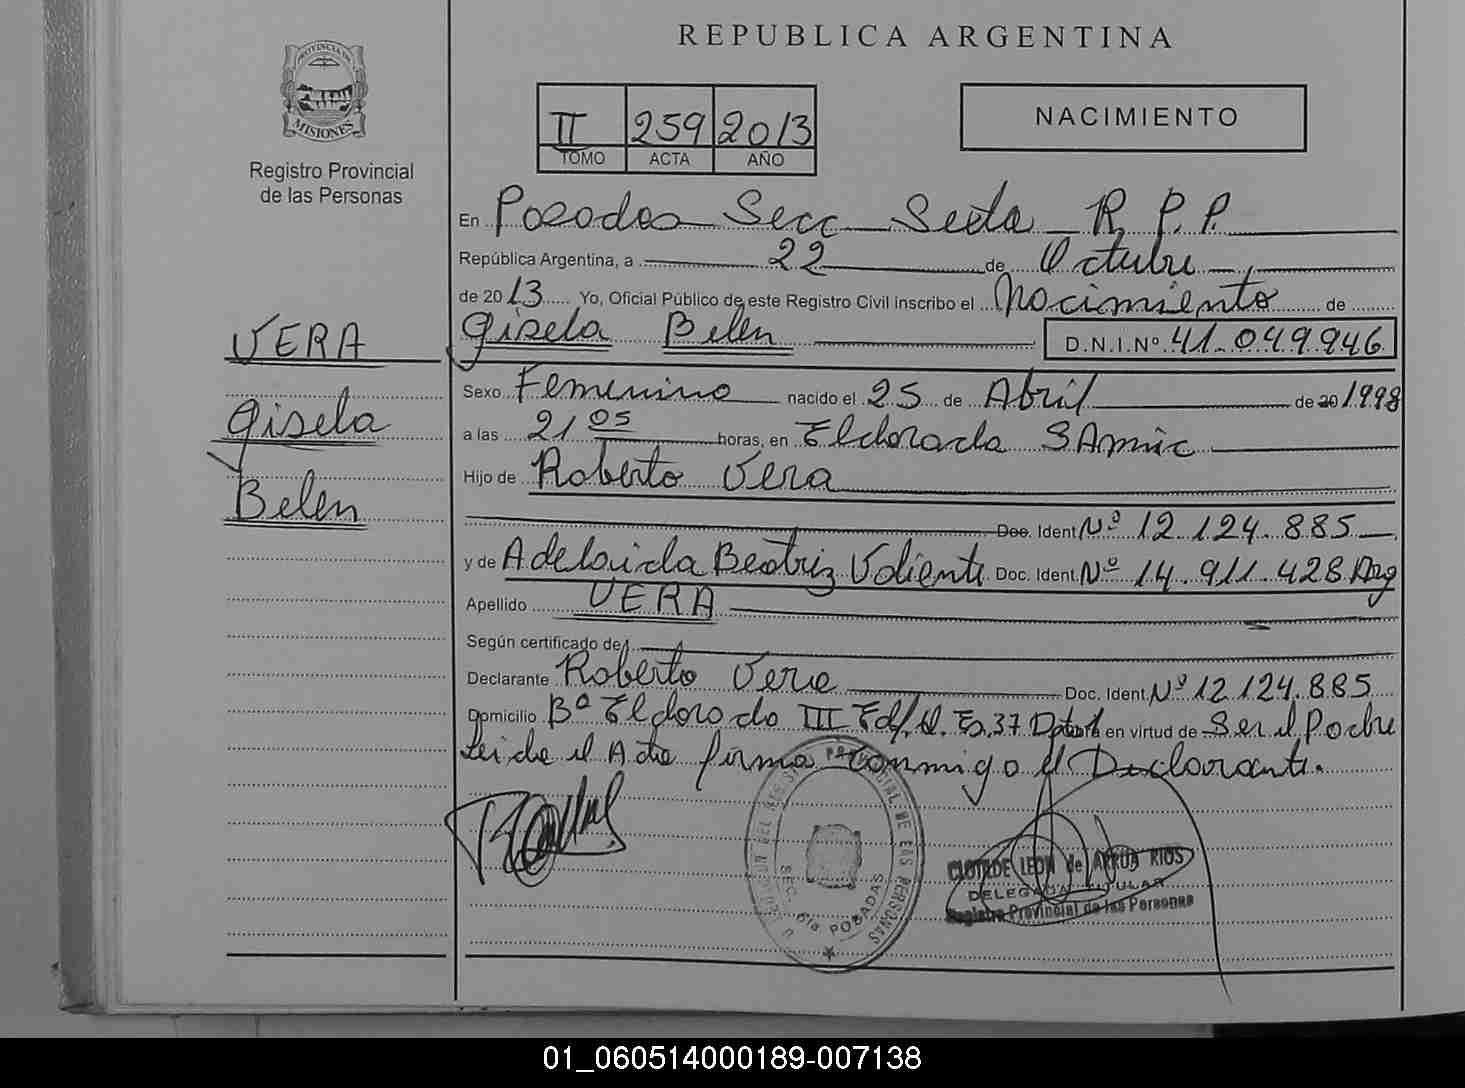 REPUBLICA ARGENTINA
PROVINCIA DE
MISIONES
Registro Provincial
de las Personas
II 259 2013
TOMO ACTA AÑO
NACIMIENTO
En Posadas Secc Sexta R. P. P.
República Argentina, a 22 de Octubre
de 2013 Yo, Oficial Público de este Registro Civil inscribo el Nacimiento de
VERA
Gisela
Belen
Gisela Belen D.N.I.Nº 41.049.946
Sexo Femenino nacido el 25 de Abril de 20 1998
a las 21 05 horas, en Eldorado SAmic
Hijo de Roberto Vera
Doc. Ident Nº 12.124.885
y de Adelaida Beatriz Valiente Doc. Ident. Nº 14.911.428 Arg
Apellido VERA
Según certificado de
Declarante Roberto Vera Doc. Ident. Nº 12.124.885
Domicilio Bº Eldorado III Edf. 37 en virtud de Ser el Padre
Leida el Acta firma conmigo el Declarante.
SEC. 6ta POSADAS
CLOTILDE LEON de ARRUA RIOS
DELEGADA TITULAR
Registro Provincial de las Personas
01_060514000189-007138